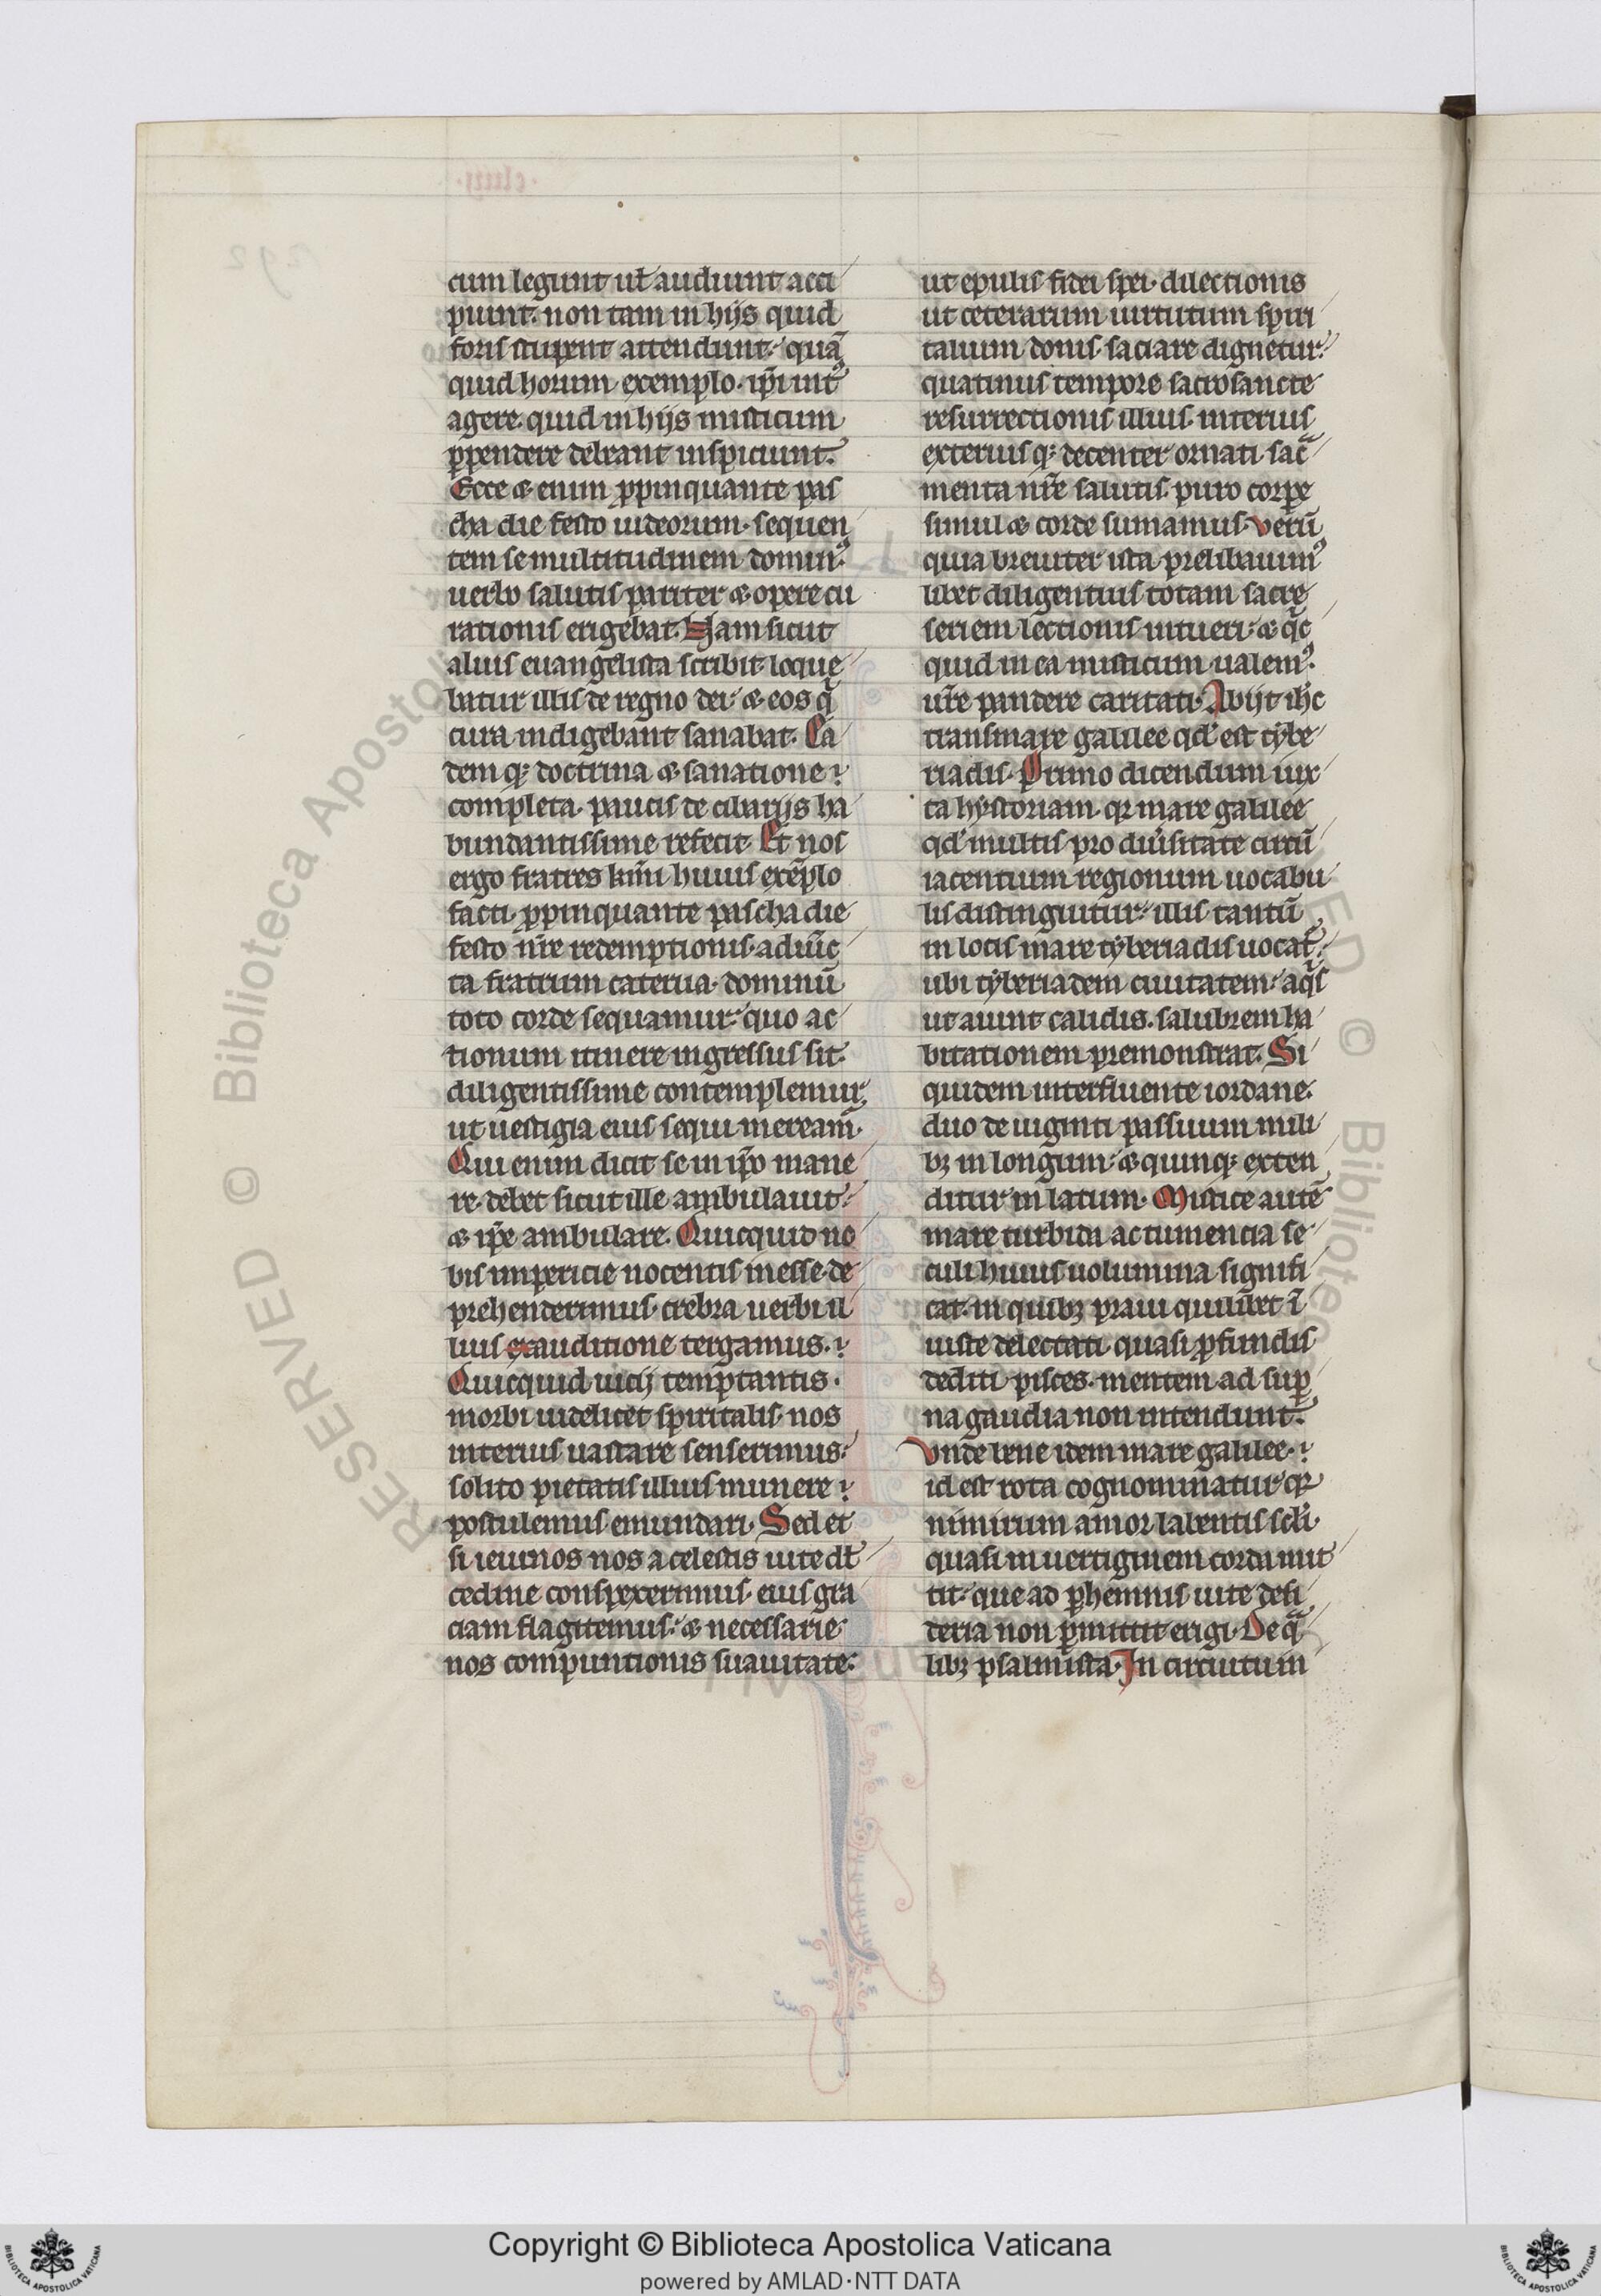 cum legunt ul̄ audiunt acci
piunt. non tam in hijs quid
foris stupent attendunt. quā
quid horum exemplo. ip̄i int᷒
agere. quid in hijs misticum
ꝑpendere debeant inspiciunt.
Ecce & enim ꝓpinquante pas
cha die festo iudeorum. sequen
tem se multitudinem domin᷒
uerbo salutis pariter & opere cu
rationis erigebat. Nam sicut
alius euangelista scribit loque
batur illis de regno dei. & eos q̄
cura indigebant sanabat. Ea
dem q; doctrina & sanatione
completa. paucis de cibarijs ha
bundantissime refecit. Et nos
ergo fratres kmī huius exēplo
facti. ꝓpinquante pascha die
festo nr̄e redemptionis. adiūc
ta fratrum caterua. dominū
toto corde sequamur. quo ac
tionum itinere ingressus sit.
diligentissime contemplemur.
ut uestigia eius sequi meream᷒.
Qui enim dicit se in ip̄o mane
re. debet sicut ille ambulauit.
& ip̄e ambulare. Quicquid no
bis impericie nocentis inesse de
prehenderimus. crebra uerbi il
lius exauditione tergamus.
Quicquid uicij temptantis.
morbi uidelicet spiritalis. nos
interius uastare senserimus.
solito pietatis illius munere
postulemus emundari. Sed et
si ieiunos nos a celestis uite dl̄
cedine conspexerimus. eius gra
ciam flagitemus. & necessarie
nos compuntionis suauitate.
ut epulis fidei spei. dilectionis
ut ceterarum uirtutum spiri
talium donis. saciare dignetur.
quatinus tempore sacrosancte
resurrectionis illius. interius
exterius q; decenter ornati. sac̄
menta nr̄e salutis. puro corpe
simul & corde sumamus. Verū
quia breuiter ista prelibauim᷒
libet diligentius totam sacre
seriem lectionis intueri. & q̄c
quid in ea misticum ualem᷒.
ur̄e pandere caritati. Abijt ih̄c
transmare galilee qd̄ est tybe
riadis. Primo dicendum iux
ta hystoriam. qr mare galilee
qd̄ multis pro diu͛sitate circū
iacentium regionum uocabu
lis distinguitur. illis tantū
in locis mare tyberiadis uocat᷒.
ubi tyberiadem ciuitatem. aq̄s
ut aiunt calidis. salubrem ha
bitationem premonstrat. Si
quidem interfluente iordane.
duo de uiginti passuum mili
bꝫ in longum. & quinq; exten
ditur in latum. Mistice autē
mare turbida ac tumencia se
culi huius uolumina signifi
cat. in quibꝫ praui quilibet ī
iuste delectati. quasi ꝓfundis
dediti pisces. mentem ad suꝑ
na gaudia non intendunt.
Vnde bene idem mare galilee.
id est rota cognominatur. qr
nimirum amor labentis scl̄i.
quasi in uertiginem corda mit
tit. que ad ꝑhennis uite desi
deria non ꝑmittit erigi. De q̄
libꝫ psalmista. In circuitum
Copyright © Biblioteca Apostolica Vaticana
powered by AMLAD·NTT DATA